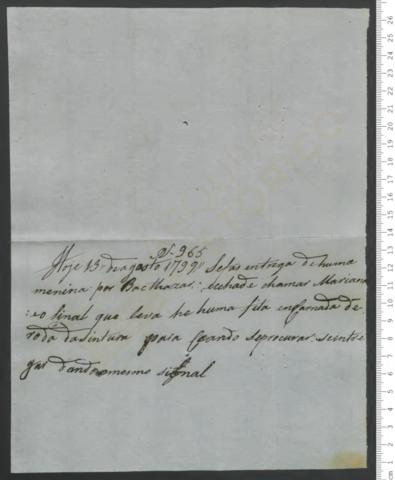 S. 965
Hoje 13, de agosto 1799,, Sefas entrega de huma
menina por Bacthazar,: sechade chamar Mariana
: eo sinal que leva he huma fita emfamada de
roda dasintura para Coando seprocurar. seintre
gar dandoomesmo signal